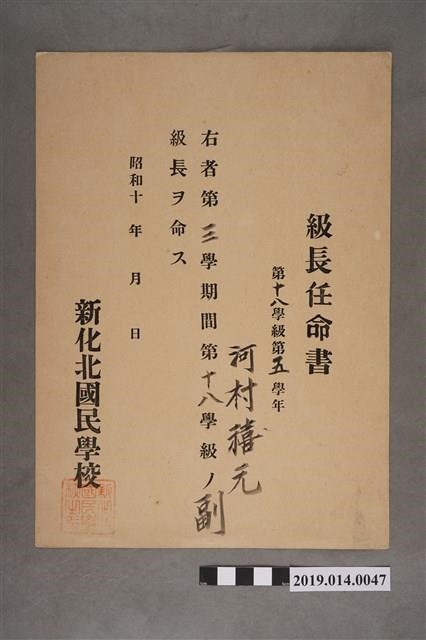 級長任命書
第十八學級第五學年
河村禧元
右者第三學期間第十八學級ノ副
級長ヲ命ス
昭和十 年 月 日
新化北國民學校
2019.014.0047